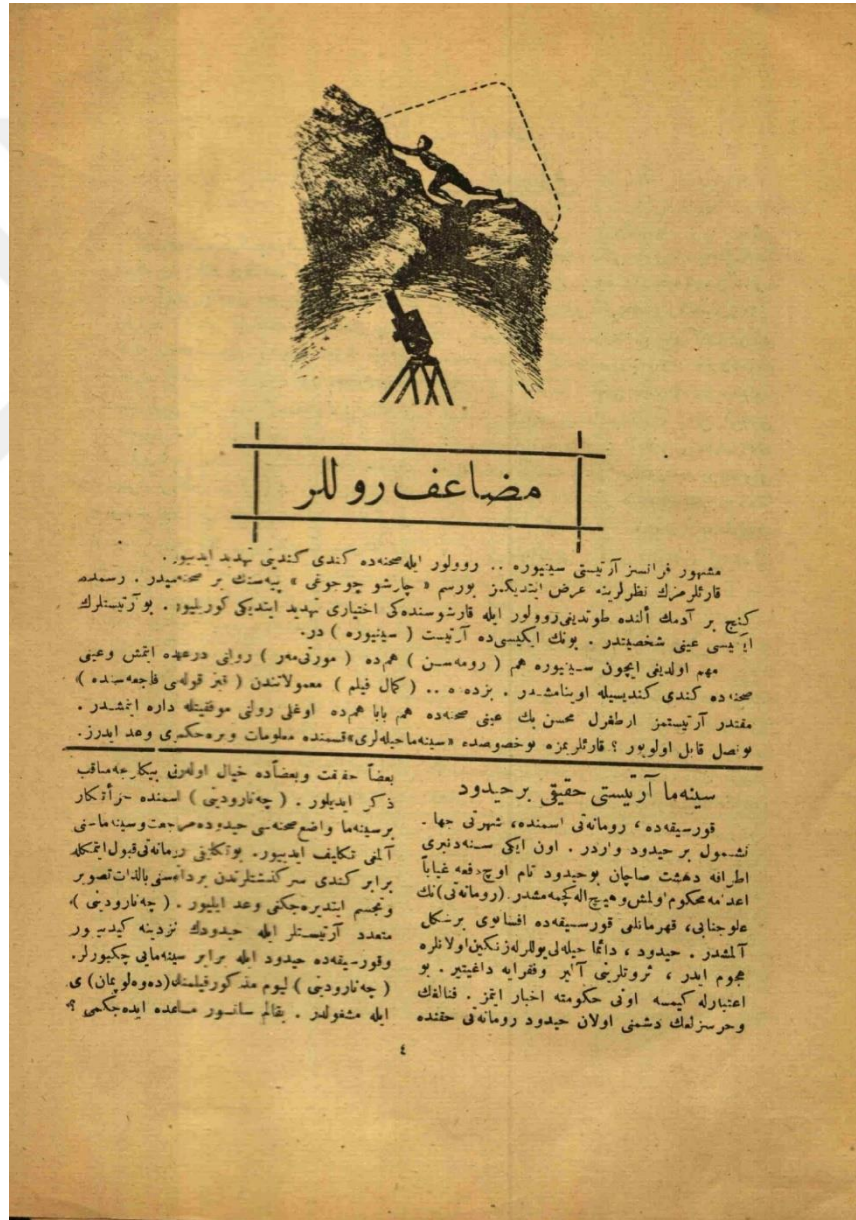 مضاعف روللر
مشهور فرانسز آرتیستی سینیوره .. روولور ایله صحنه‌ده کندی کندینی تهدید ایدیيور.
قارئلرمزك نظرلرینه عرض ایتدیكمز بورسم « چارشو چوجوغی » پیه‌سنك بر صحنه‌سیدر . رسمده
كنج بر آدمك ألنده طوتدینی روولور ایله قارشوسنده‌كی اختیاری تهدید ایتدیكی كوریلیور . بو آرتیستلرك
ایكیسی عینی شخصیتدر . بونك ایكیسی ده آرتیست ( سینیوره ) در.
مهم اولدینی ایچون سینیوره هم ( رومه‌سن ) هم‌ده ( مورتی‌مه‌ر ) رولنی درعهده ایتمش وعینی
صحنه ده كندی كندیسیله اوینامشدر . بزده ه .. ( كمال فیلم ) معمولاتندن ( قیز قوله‌سی فاجعه‌سنده )
مقتدر آرتیستمز ارطغرل محسن بك عینی صحنه‌ده هم بابا هم‌ده اوغلی رولنی موفقیتله اداره ایتمشدر .
بونصل قابل اولویور ؟ قارئلریمزه بوخصوصده «سینه‌ما حیله‌لری» قسمنده معلومات ویره‌جكمزی وعد ایدرز.
سینه‌ما آرتیستی حقیقی بر حیدود
قورسیقه‌ده ، رومانه‌تی اسمنده ، شهرتی جها ـ
نشمول بر حیدود واردر . اون ایكی سنه‌دنبری
اطرافه دهشت صاچان بوحیدود تام اوچ دفعه غیاباً
اعدامه محكوم اولمش وهیچ اله كچمه‌مشدر. (رومانه‌تی) نك
علوجنابی، قهرمانلغی قورسیقه‌ده افسانوی برشكل
آلمشدر . حیدود ، دائما حیله‌لی یوللرله زنكین اولانلره
هجوم ایدر ، ثروتلرینی آلیر وفقرایه داغیتیر . بو
اعتبارله كیمسه اونی حكومته اخبار ایتمز . فنالغك
وحرسزلغك دشمنی اولان حیدود رومانه‌تی حقنده
بعضاً حقیقت وبعضاً ده خیال اوله‌رق بیكلرجه مناقب
ذكر ایدیلور . ( چه‌نارودیتی ) اسمنده جرأتكار
برسینه‌ما واضع صحنه‌سی حیدوده مراجعت وسینه‌ماسنی
آلمغی تكلیف ایدییور. بوتكلیفی رومانه‌تی قبول ایتمكله
برابر كندی سركذشتلرندن بردانه‌سنی بالذات تصویر
وتجسم ایتدیره‌جكنی وعد ایلیور . ( چه‌نارودیتی )،
متعدد آرتیستلر ایله حیدودك نزدینه كیدییور
وقورسیقه‌ده حیدود ایله برابر سینه‌مایی چكیورلر.
( چه‌نارودیتی ) الیوم مذكور فیلمك (ده‌وه‌لوپمان) ی
ایله مشغولدر . بقالم سانسور مساعده ایده‌جكمی ؟
٤